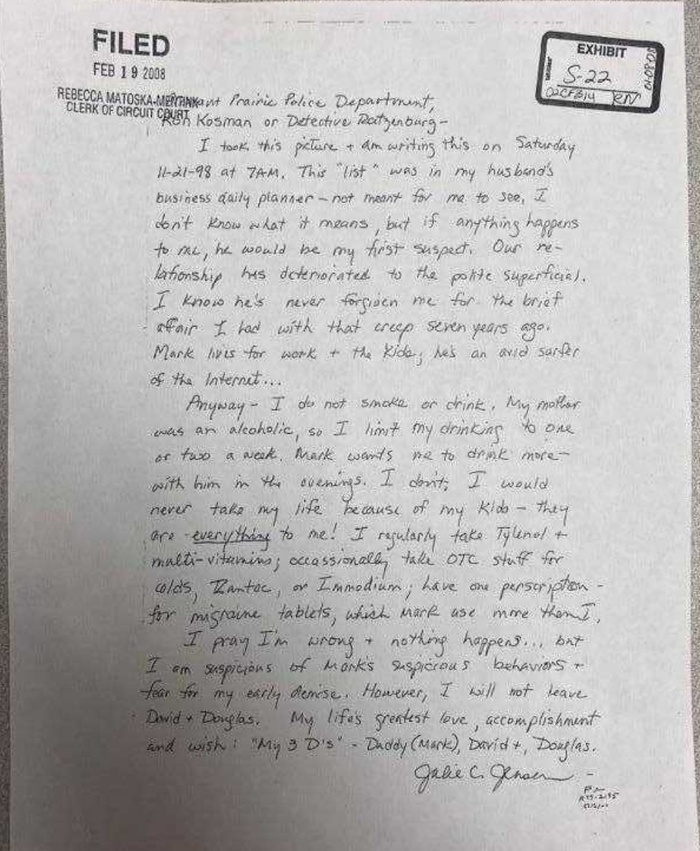 FILED
FEB 19 2008
REBECCA MATOSKA-MENTINK
CLERK OF CIRCUIT COURT
EXHIBIT
S-22
02CF314
Prairie Police Department,
Ron Kosman or Detective Ratzenburg-
I took this picture + am writing this on Saturday
11-21-98 at 7AM. This "list" was in my husband's
business daily planner - not meant for me to see, I
don't know what it means, but if anything happens
to me, he would be my first suspect. Our re-
lationship has deteriorated to the polite superficial.
I know he's never forgiven me for the brief
affair I had with that creep seven years ago.
Mark lives for work + the kids; he's an avid surfer
of the Internet...
Anyway - I do not smoke or drink. My mother
was an alcoholic, so I limit my drinking to one
or two a week. Mark wants me to drink more-
with him in the evenings. I don't. I would
never take my life because of my kids - they
are everything to me! I regularly take Tylenol +
multi-vitamins; occassionally take OTC stuff for
colds, Zantac, or Immodium; have one perscription -
for migraine tablets, which Mark use more than I.
I pray I'm wrong + nothing happens... but
I am suspicious of Mark's suspicious behaviors +
fear for my early demise. However, I will not leave
David + Douglas. My life's greatest love, accomplishment
and wish: "My 3 D's" - Daddy (Mark), David +, Douglas.
Julie C. Jensen -